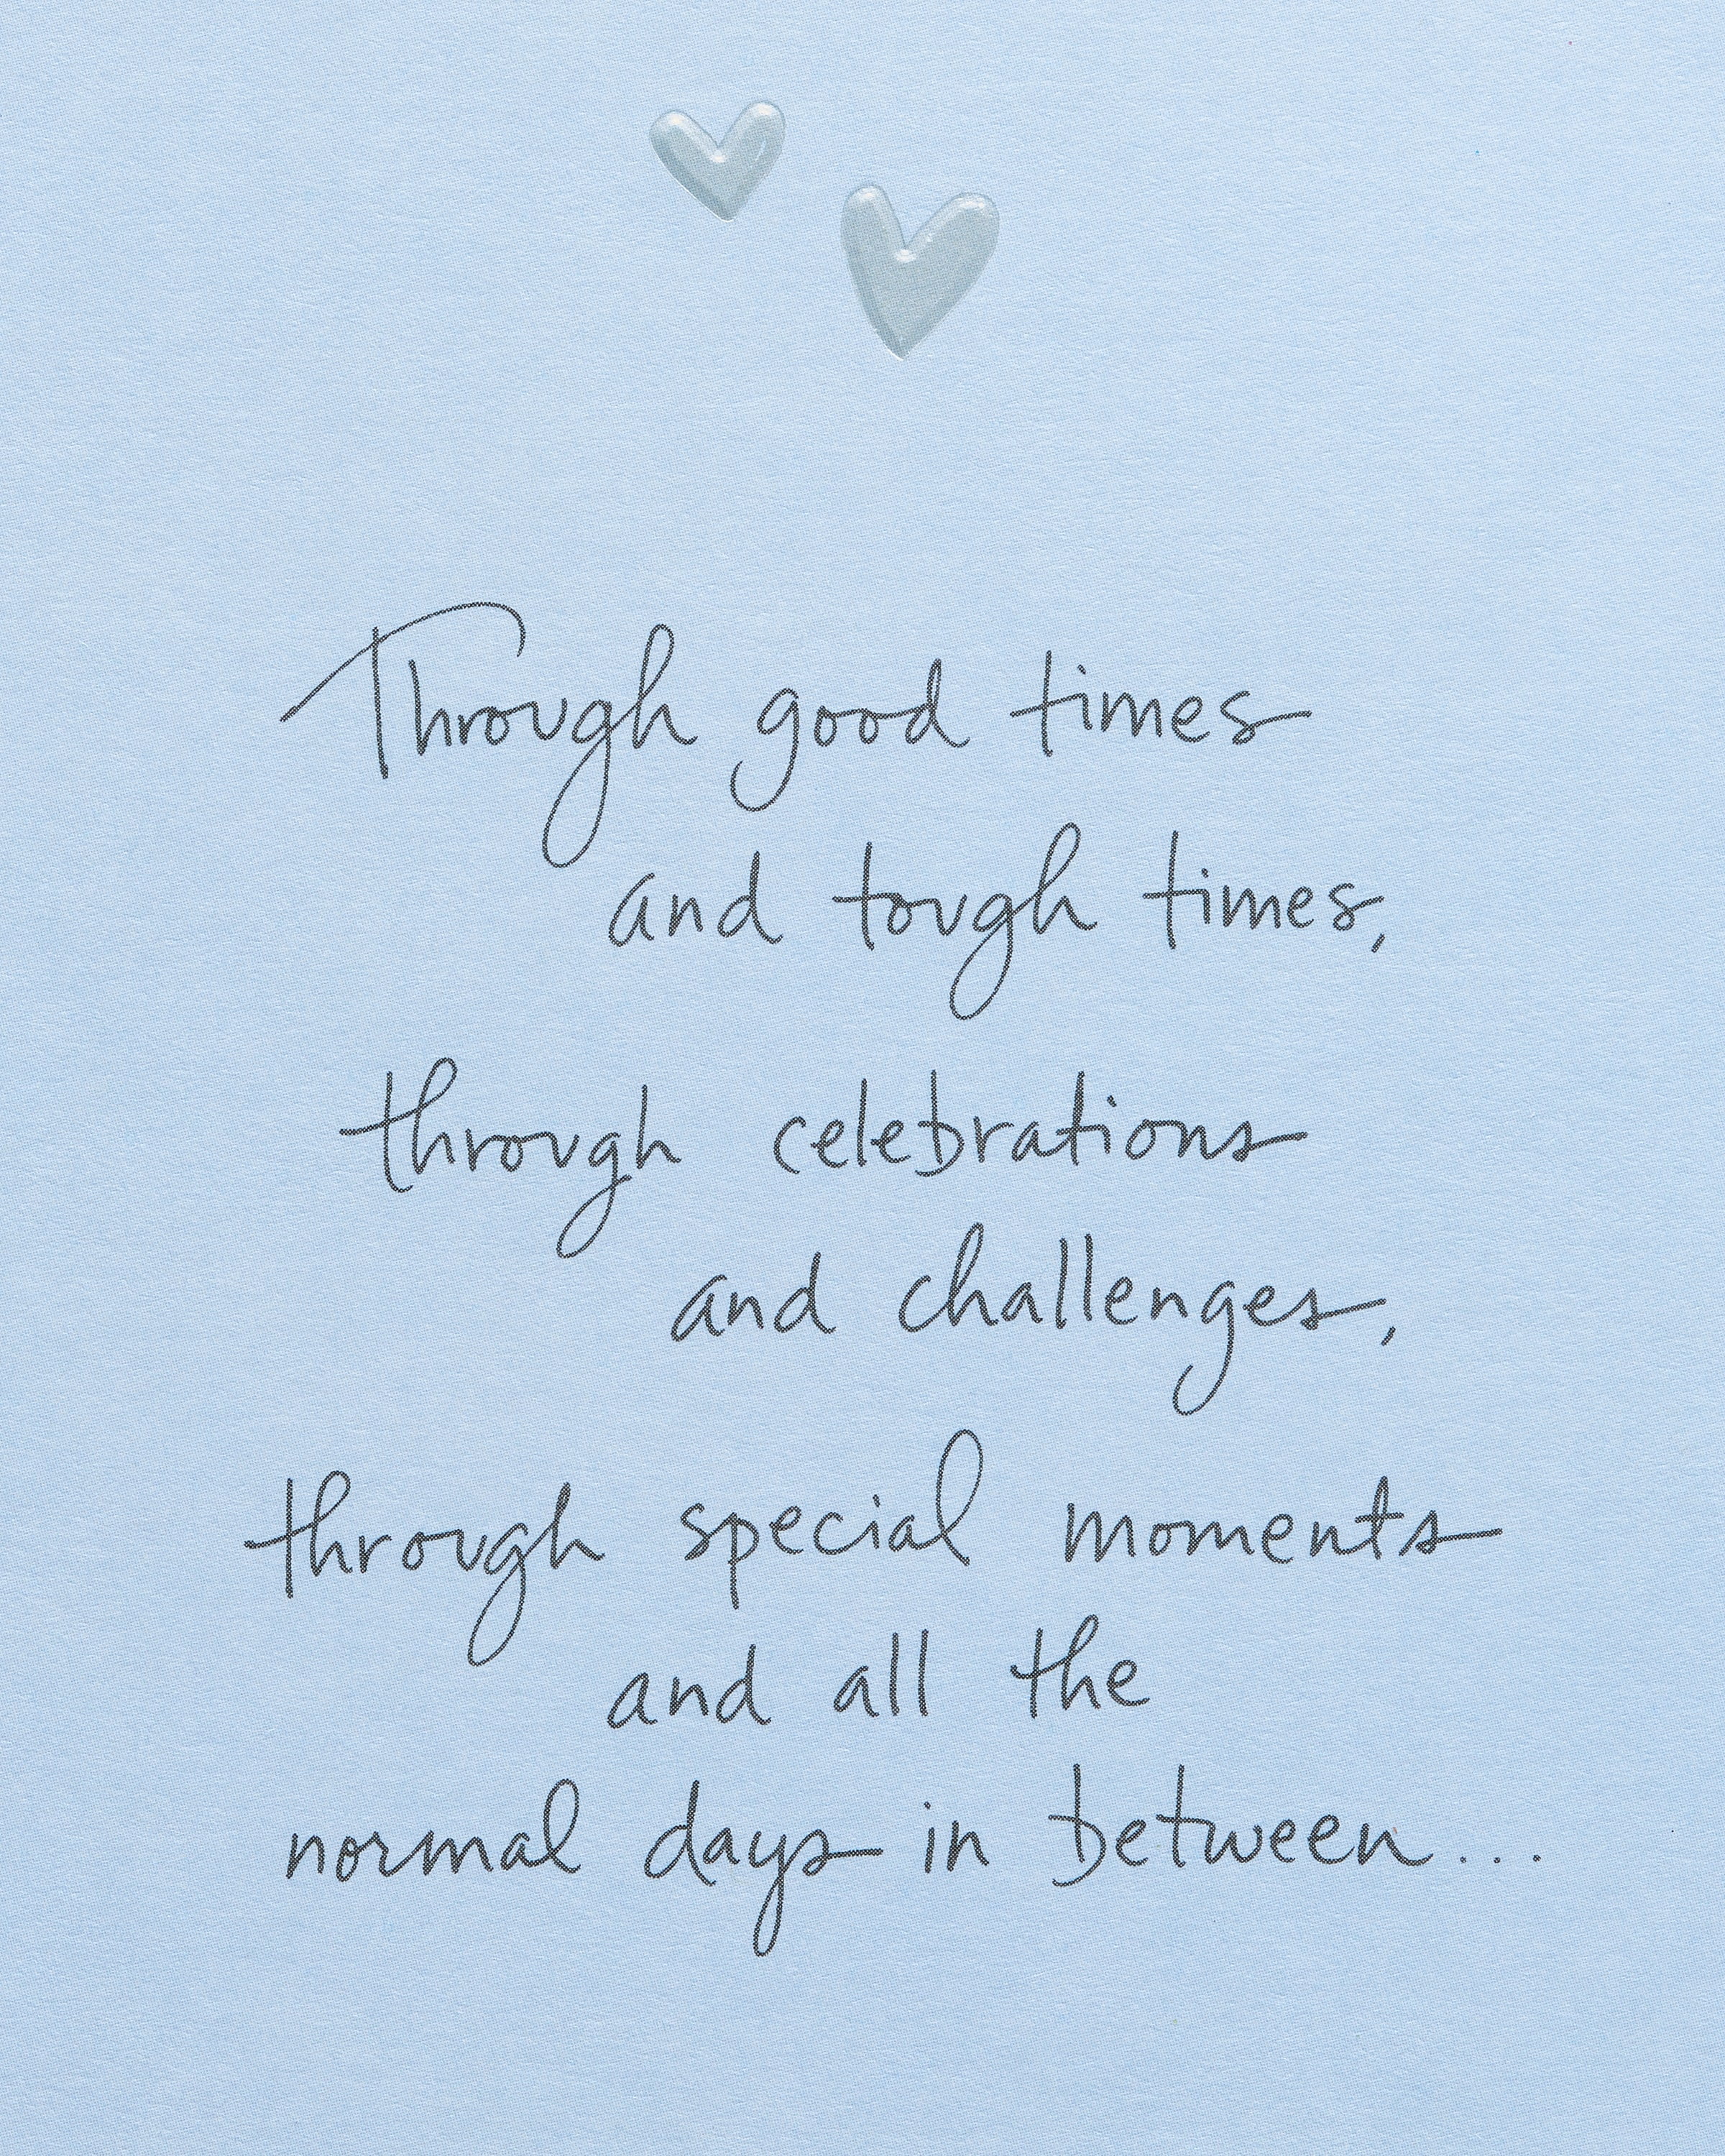 Through good times
and tough times,
through celebrations
and challenges,
through special moments
and all the
normal days in between...